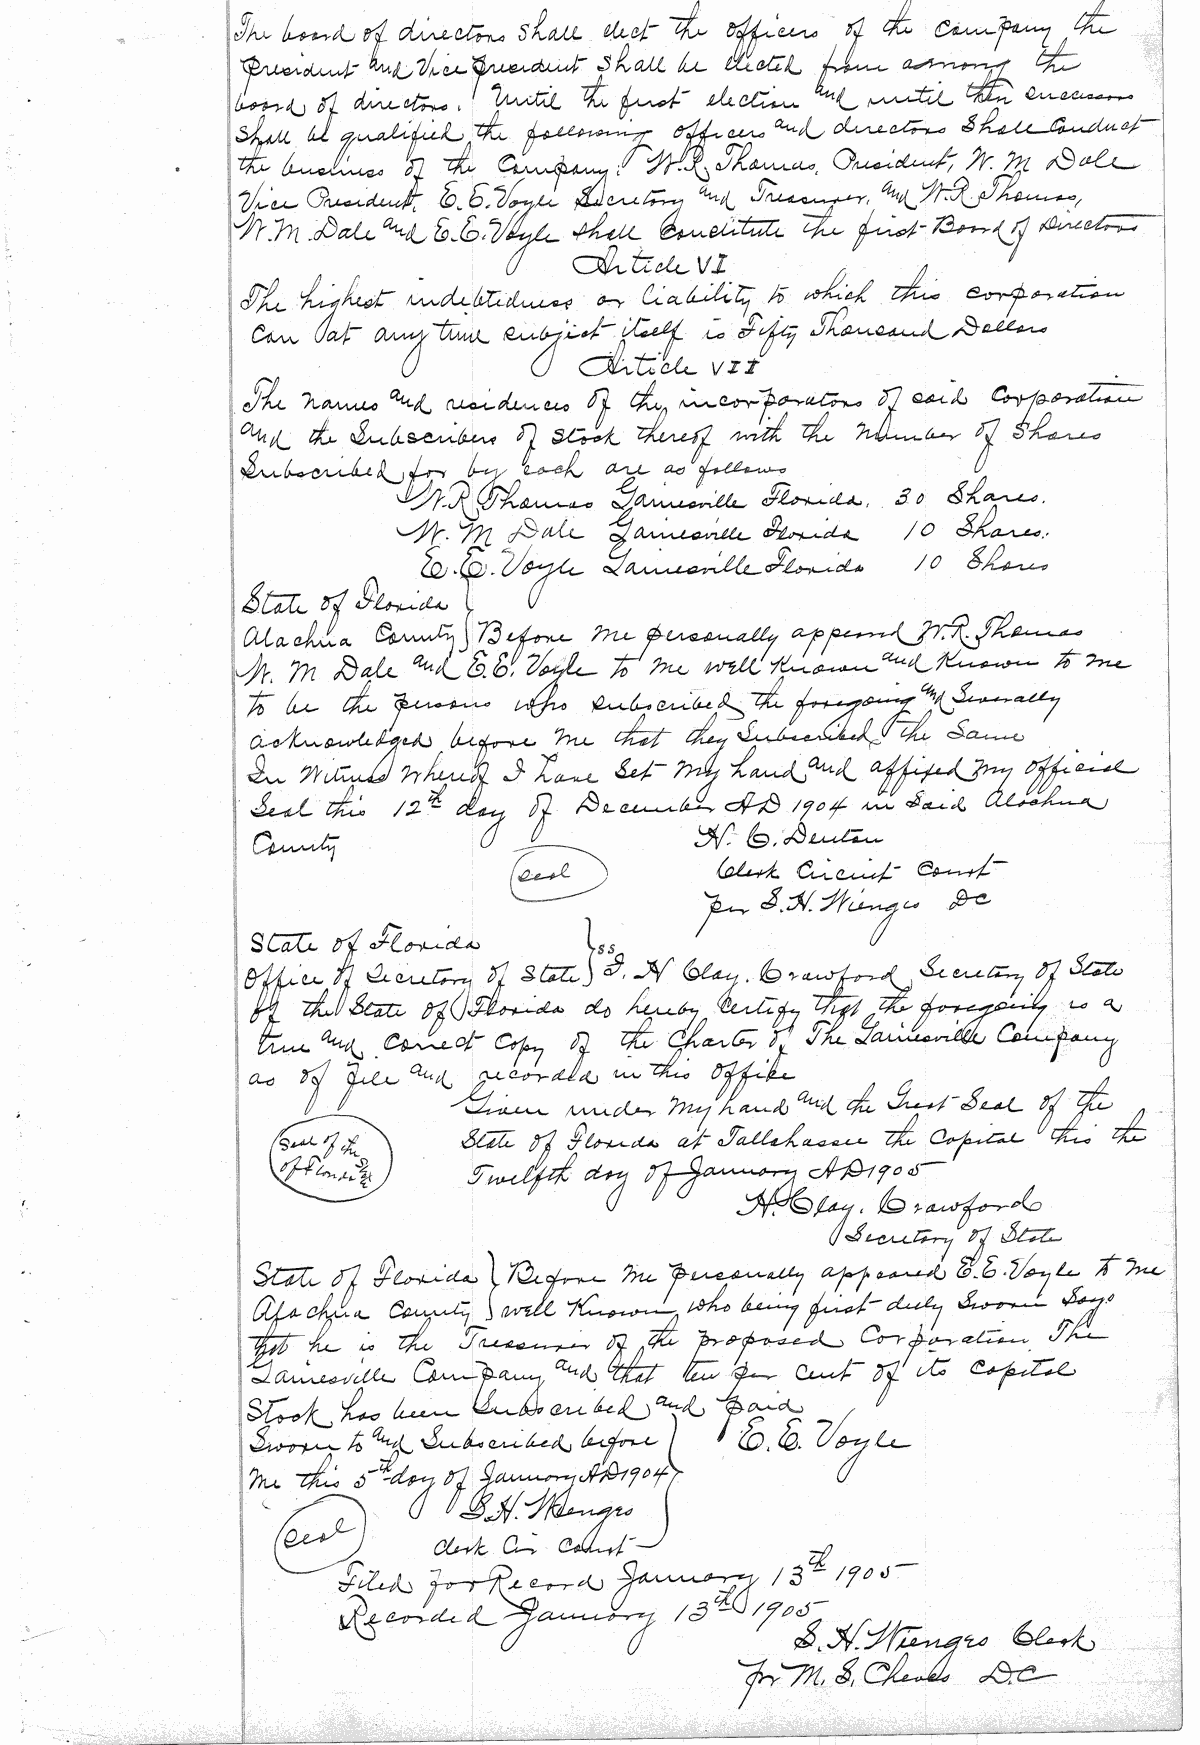 The board of directors shall elect the officers of the company the
President and Vice president shall be elected from among the
board of directors. Until the first election and until their successors
shall be qualified the following officers and directors shall conduct
the business of the Company. W.R. Thomas, President, W. M Dale
Vice President, E.E. Voyle Secretary and Treasurer, and W.R. Thomas,
W.M. Dale and E.E. Voyle shall constitute the first Board of Directors
Article VI
The highest indebtedness or liability to which this corporation
can at any time subject itself is Fifty Thousand Dollars
Article VII
The names and residences of the incorporators of said Corporation
and the Subscribers of Stock thereof with the number of Shares
Subscribed for by each are as follows
W.R Thomas Gainesville Florida. 30 Shares.
W. M Dale Gainesville Florida 10 Shares.
E. E. Voyle Gainesville Florida 10 Shares
State of Florida
Alachua County } Before me personally appeared W.R. Thomas
W. M Dale and E.E. Voyle to me well Known and Known to me
to be the persons who subscribed the foregoing and Severally
acknowledged before me that they Subscribed the Same
In Witness Whereof I have Set my hand and affixed my official
Seal this 12th day of December AD 1904 in Said Alachua
County
H. C. Denton
Seal
Clerk Circuit Court
per S. H. Wienges DC
State of Florida
ss
Office of Secretary of State } I. H Clay. Crawford Secretary of State
of the State of Florida do hereby Certify that the foregoing is a
true and Correct Copy of the Charter of The Gainesville Company
as of file and recorded in this office
Given under my hand and the Great Seal of the
State of Florida at Tallahassee the Capital this the
Twelfth day of January AD 1905
Seal of the State
of Florida
H. Clay. Crawford
Secretary of State
State of Florida } Before me personally appeared E.E. Voyle to me
Alachua County } well Known, who being first duly Sworn Says
that he is the Treasurer of the proposed Corporation The
Gainesville Company and that ten per cent of its capital
Stock has been Subscribed and paid
Sworn to and Subscribed before } E. E. Voyle
me this 5th day of January AD 1904
S.H. Wienges
Seal
Clerk Cir Court
Filed for Record January 13th 1905
Recorded January 13th 1905
S. H. Wienges Clerk
per M. S. Cheves D.C